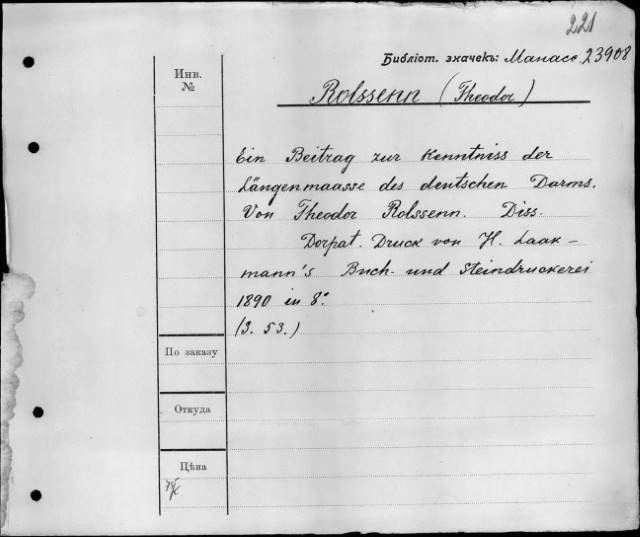 221
Библіот. значекъ: Манасс 23908
Инв.
№
Rolssenn (Theodor)
Ein Beitrag zur Kenntniss der
Längenmaasse des deutschen Darms.
Von Theodor Rolssenn. Diss.
Dorpat. Druck von H. Laak-
mann's Buch- und Steindruckerei
1890 in 8°.
(3. 53.)
По заказу
Откуда
Цѣна